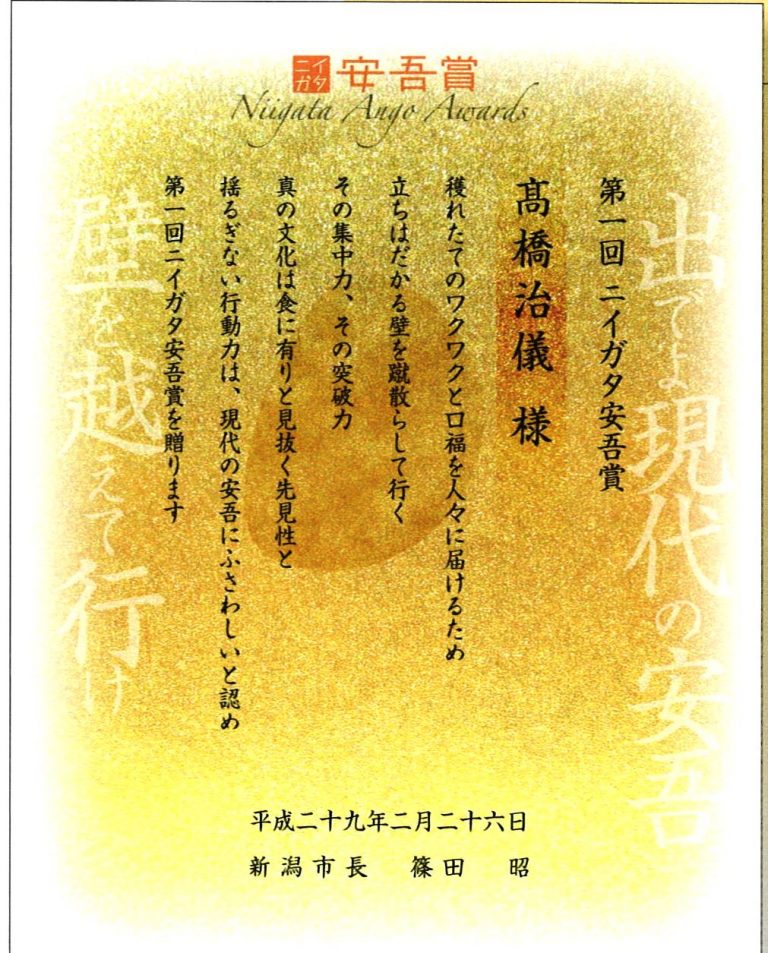 ニイガタ 安吾賞
Niigata Ango Awards
出でよ現代の安吾
第一回 ニイガタ安吾賞
髙橋治儀 様
穫れたてのワクワクと口福を人々に届けるため
立ちはだかる壁を蹴散らして行く
その集中力、その突破力
真の文化は食に有りと見抜く先見性と
揺るぎない行動力は、現代の安吾にふさわしいと認め
第一回ニイガタ安吾賞を贈ります
壁を越えて行け
平成二十九年二月二十六日
新潟市長 篠田 昭